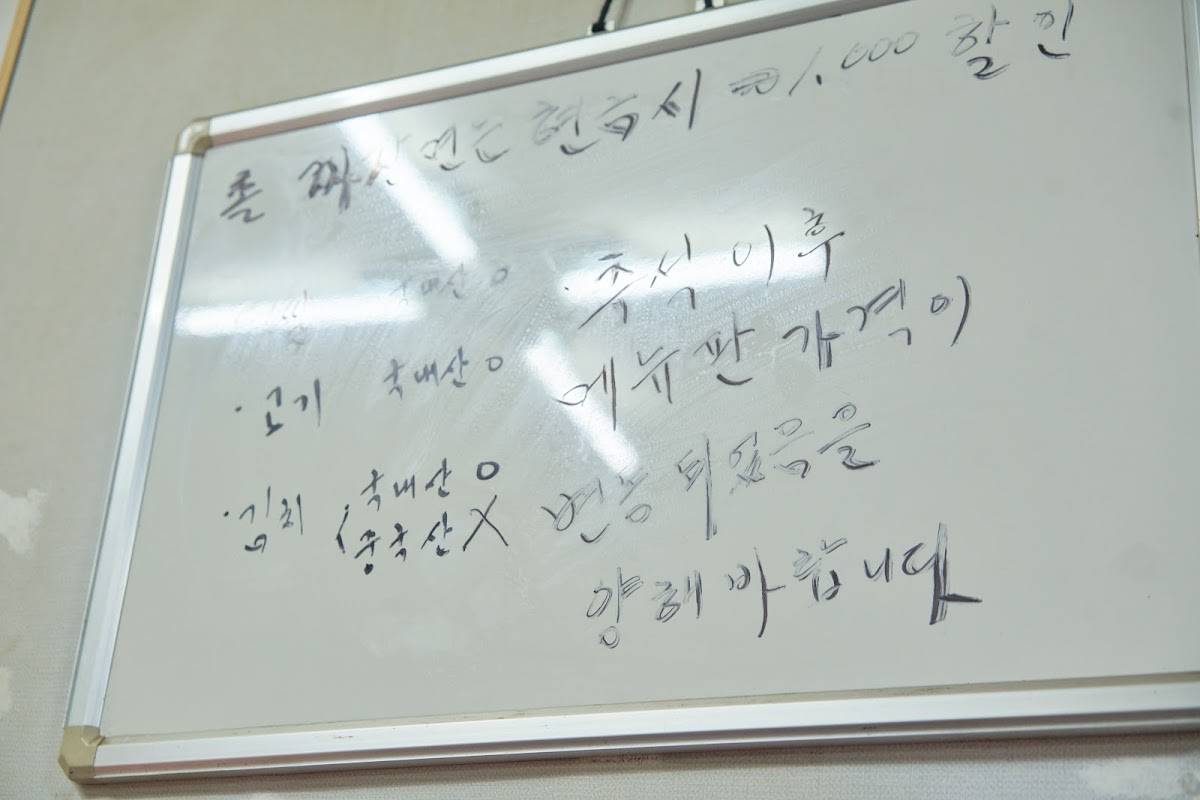 쫄 짜장면은 현금시 ₩1.000 할인
쌀 국내산 O
· 고기 국내산 O
· 김치 국내산 O
(중국산 X
· 추석 이후
메뉴판 가격이
변동 되었음을
양해 바랍니다